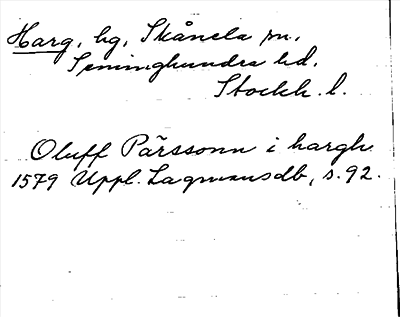 Harg, hg, Skånela sn.
Seminghundra hd.
Stockh. l.
Oluff Pärssonn i hargh
1579 Uppl. Lagmansdb, s. 92.